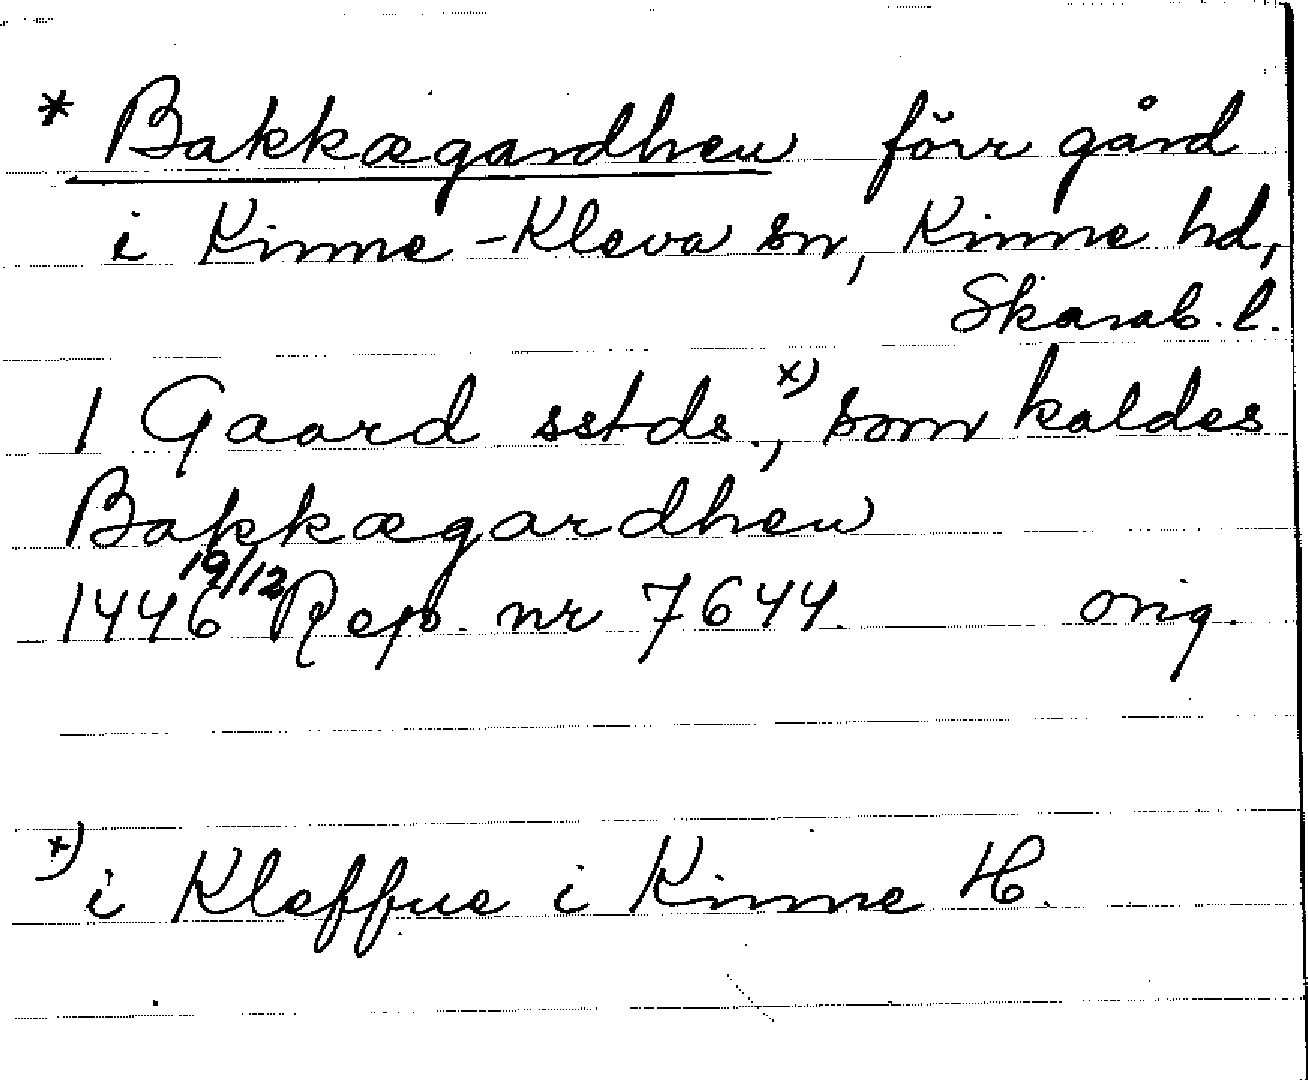 * Bakkægardhen förr gård
i Kinne-Kleva sn, Kinne hd,
Skarab. l.
1 Gaard sstds.x), som kaldes
Bakkægardhen
1446 19/12 Rep. nr 7644. orig.
x) i Kleffue i Kinne H.